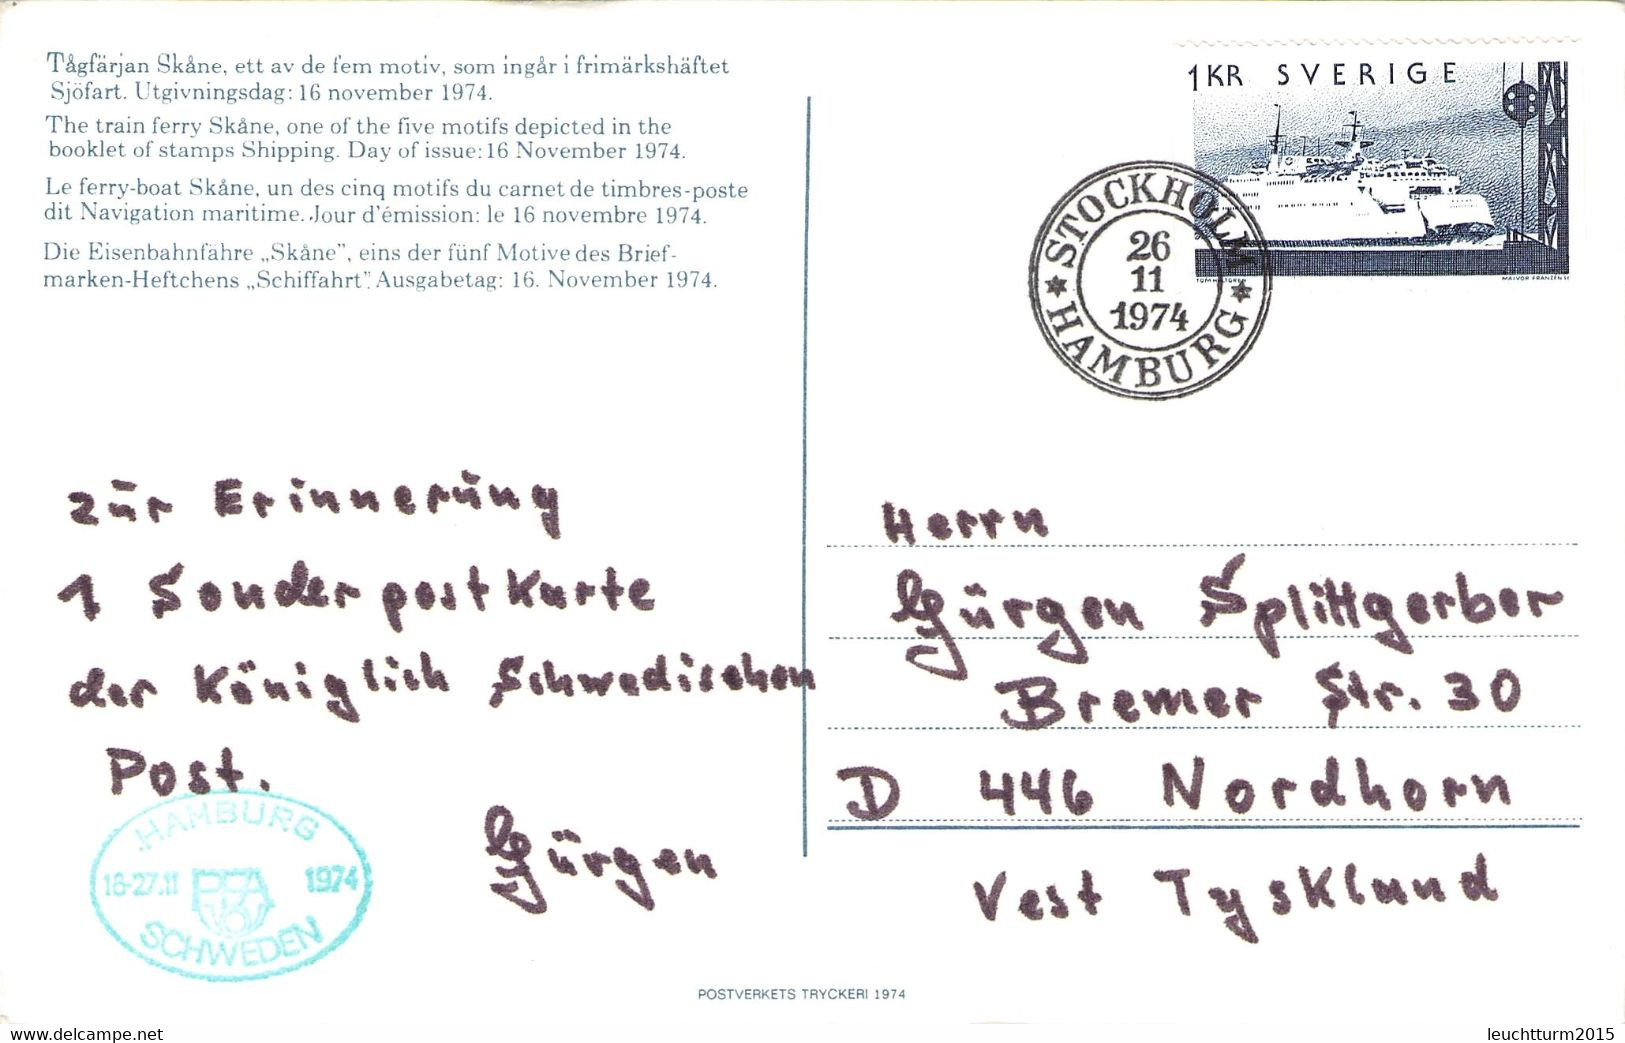 Tågfärjan Skåne, ett av de fem motiv, som ingår i frimärkshäftet
Sjöfart. Utgivningsdag: 16 november 1974.
The train ferry Skåne, one of the five motifs depicted in the
booklet of stamps Shipping. Day of issue: 16 November 1974.
Le ferry-boat Skåne, un des cinq motifs du carnet de timbres-poste
dit Navigation maritime. Jour d'émission: le 16 novembre 1974.
Die Eisenbahnfähre „Skåne”, eins der fünf Motive des Brief-
marken-Heftchens „Schiffahrt”. Ausgabetag: 16. November 1974.
1 KR SVERIGE
MAJVOR FRANZÉN SC
STOCKHOLM
26
11
1974
HAMBURG
zur Erinnerung
1 Sonderpostkarte
der Königlich Schwedischen
Post.
Jürgen
HAMBURG
18-27.11 PFA 1974
SCHWEDEN
Herrn
Jürgen Splittgerber
Bremer Str. 30
D 446 Nordhorn
Vest Tyskland
POSTVERKETS TRYCKERI 1974
https://www.delcampe.net
leuchtturm2015